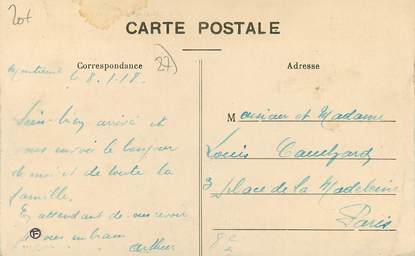 CARTE POSTALE
Correspondance
27)
Adresse
le 8.1.18.
Suis bien arrivé et
vous envoi le bonjour
de moi et de toute la
famille.
En attendant de vous revoir
vous embram
M onsieur et Madame
Louis
3 place de la Madeleine
Paris